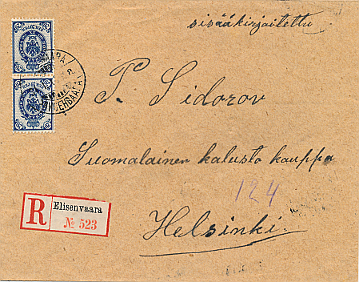 sisääkirjoitettu
P. Sidorov
Suomalainen kalusto kauppa
124
Helsinki.
R
Elisenvaara
№ 523